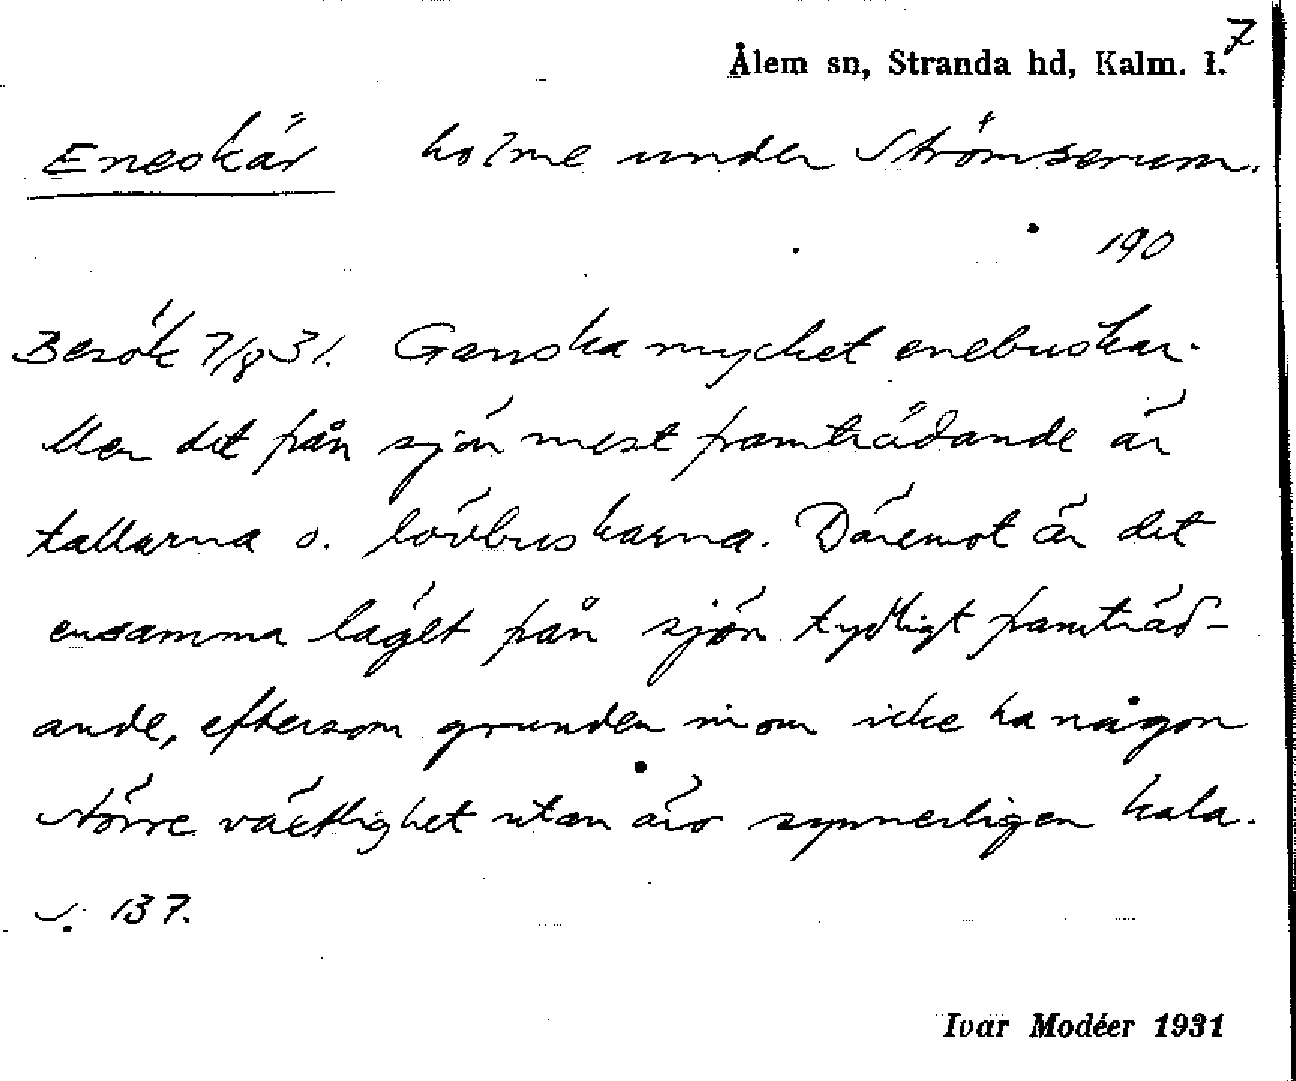 7
Ålem sn, Stranda hd, Kalm. l.
Eneskär holme under Strömserum.
190
Besök 7/8 31. Ganska mycket enebuskar.
Men det från sjön mest framträdande är
tallarna o. lövbuskarna. Däremot är det
ensamma läget från sjön tydligt framträd-
ande, eftersom grunden inom icke ha någon
större växtlighet utan äro synnerligen kala.
s. 137.
Ivar Modéer 1931